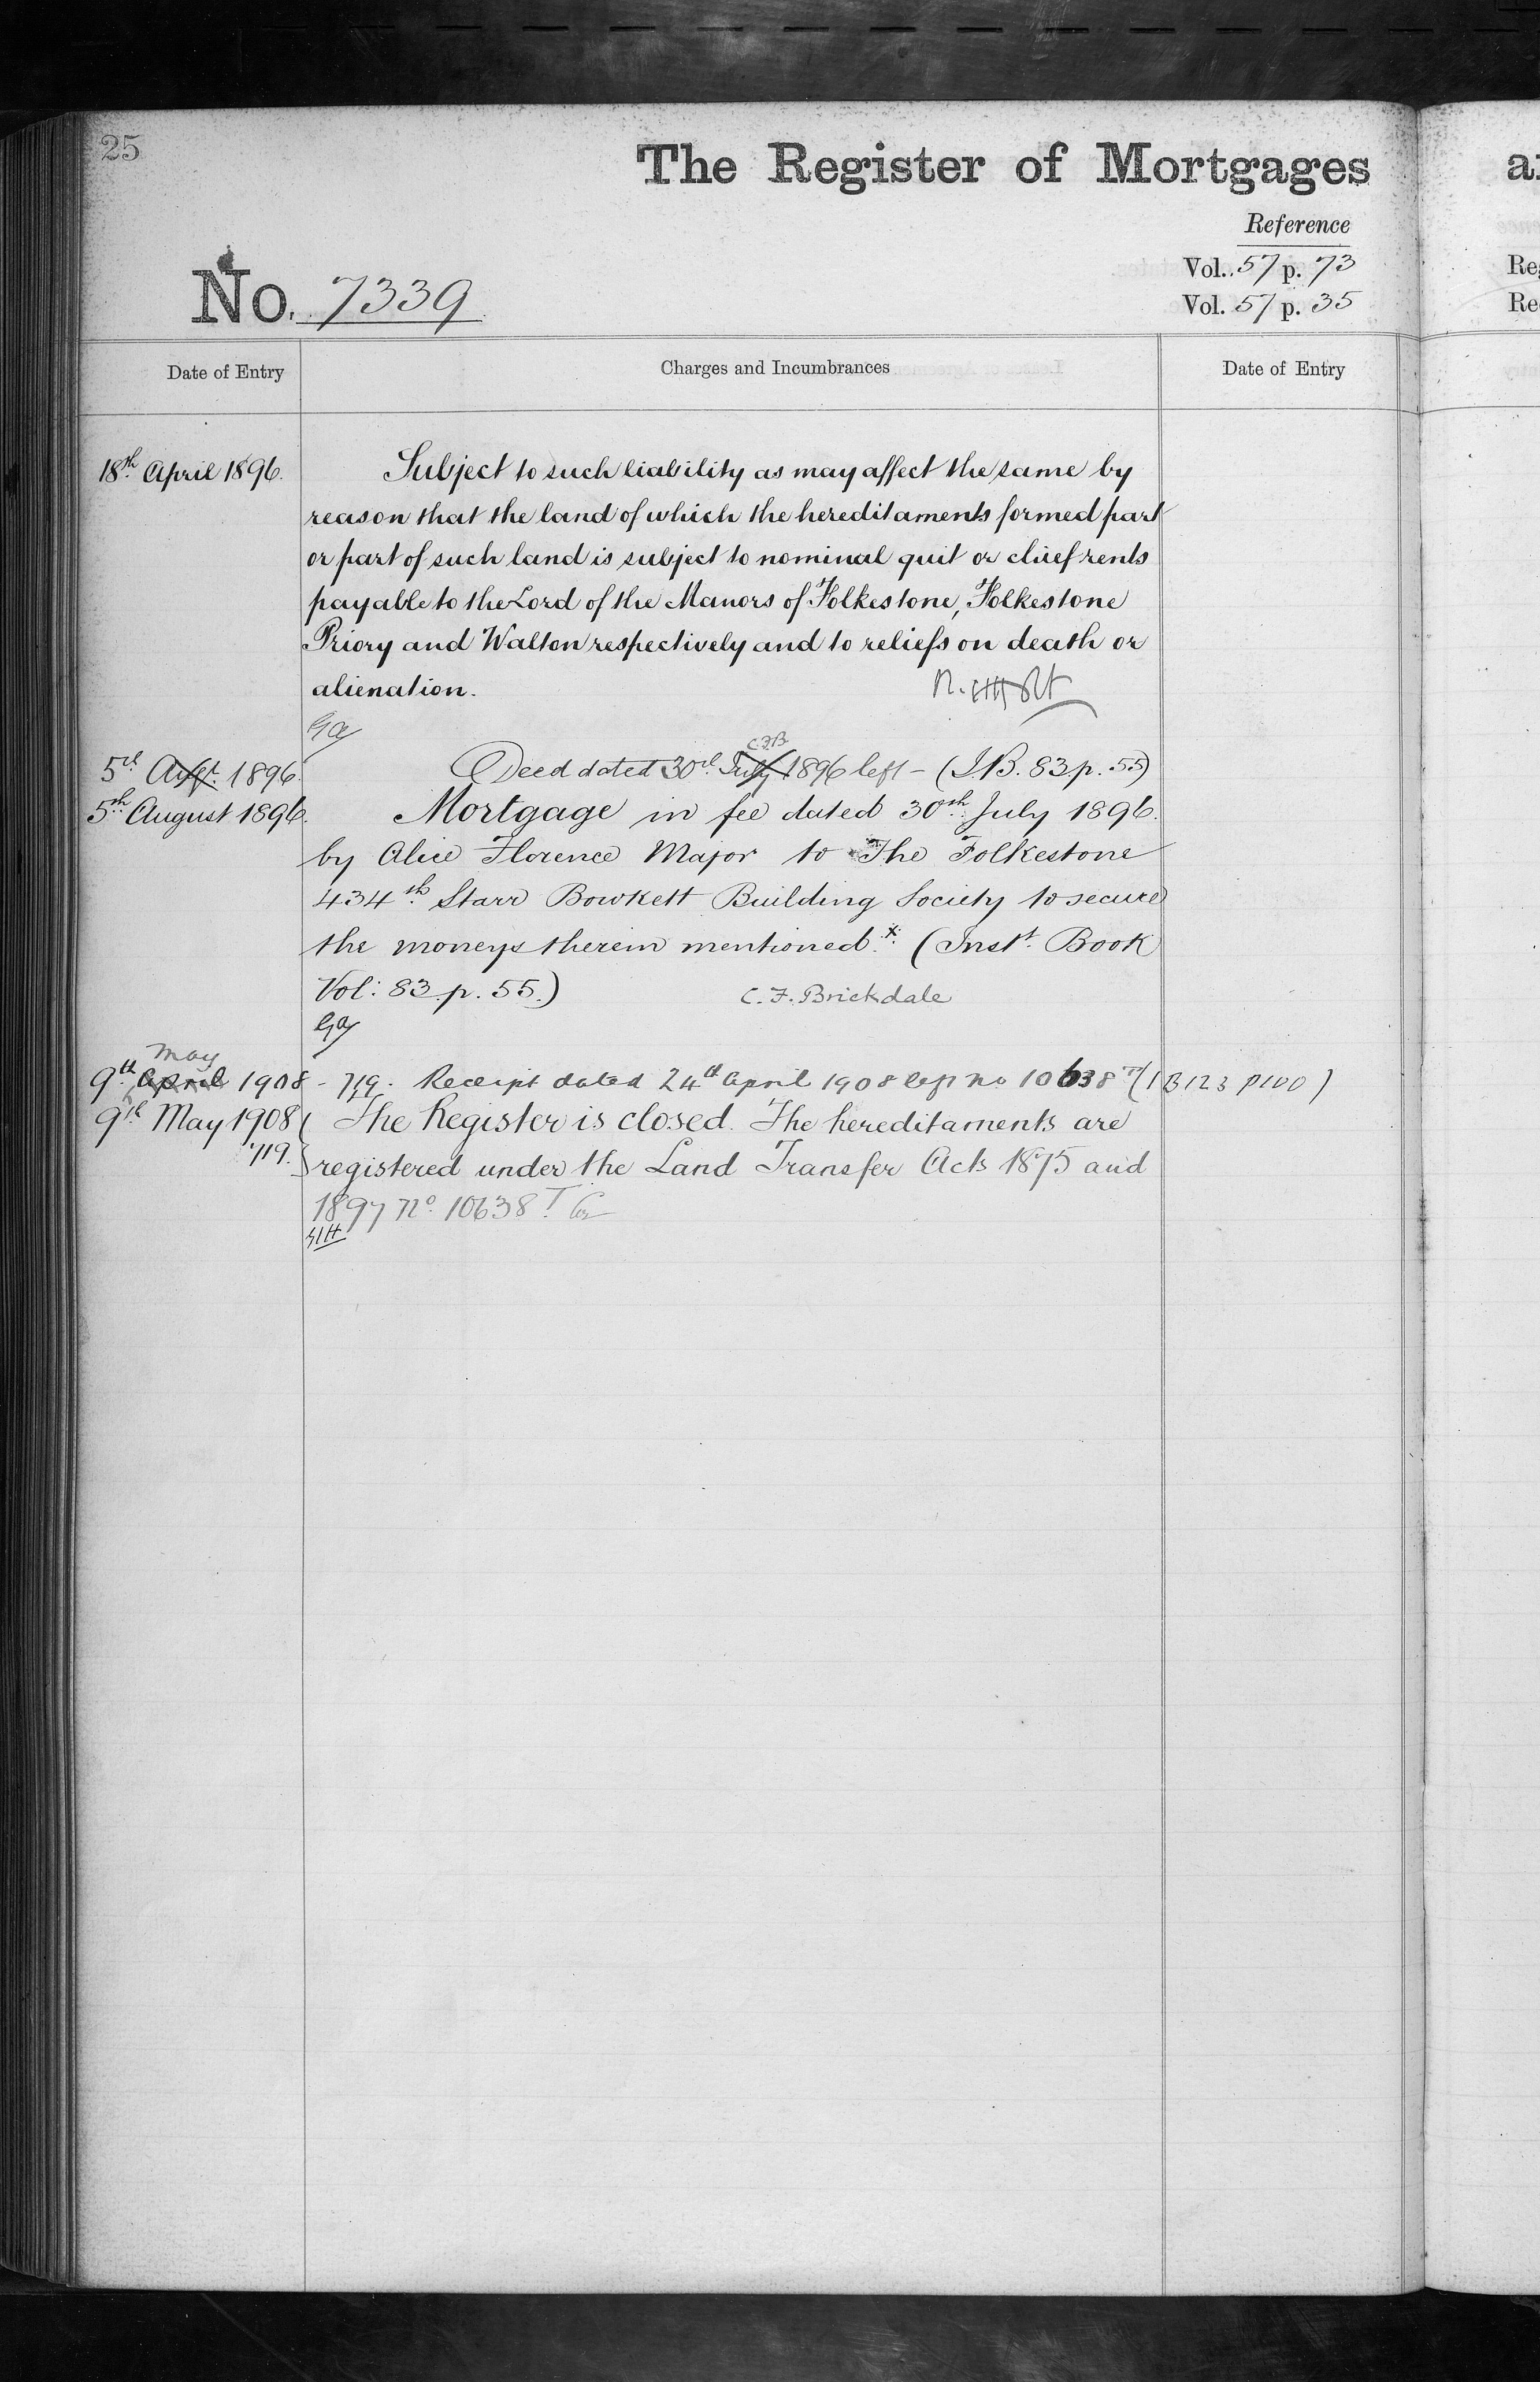 25
The Register of Mortgages
Reference
Vol. 57 p. 73
No. 7339
Vol. 57 p. 35
Date of Entry
Charges and Incumbrances
Date of Entry
18th April 1896.
Subject to such liability as may affect the same by
reason that the land of which the hereditaments formed part
or part of such land is subject to nominal quit or chief rents
payable to the Lord of the Manors of Folkestone, Folkestone
Priory and Walton respectively and to reliefs on death or
alienation.
C.F.B.
5th Augt. 1896.
Deed dated 30th July 1896 left - (I.B. 83 p. 55)
5th August 1896.
Mortgage in fee dated 30th July 1896.
by Alice Florence Major to The Folkestone
434th Starr Bowkett Building Society to secure
the moneys therein mentioned. x (Inst. Book
Vol: 83 p. 55.)
C. F. Brickdale
May
9th April 1908 - 719. Receipt dated 24th April 1908 left no 10638 T (IB 123 p100)
9th May 1908
719.
The Register is closed. The hereditaments are
registered under the Land Transfer Acts 1875 and
1897 No. 10638 T.
Re
Re